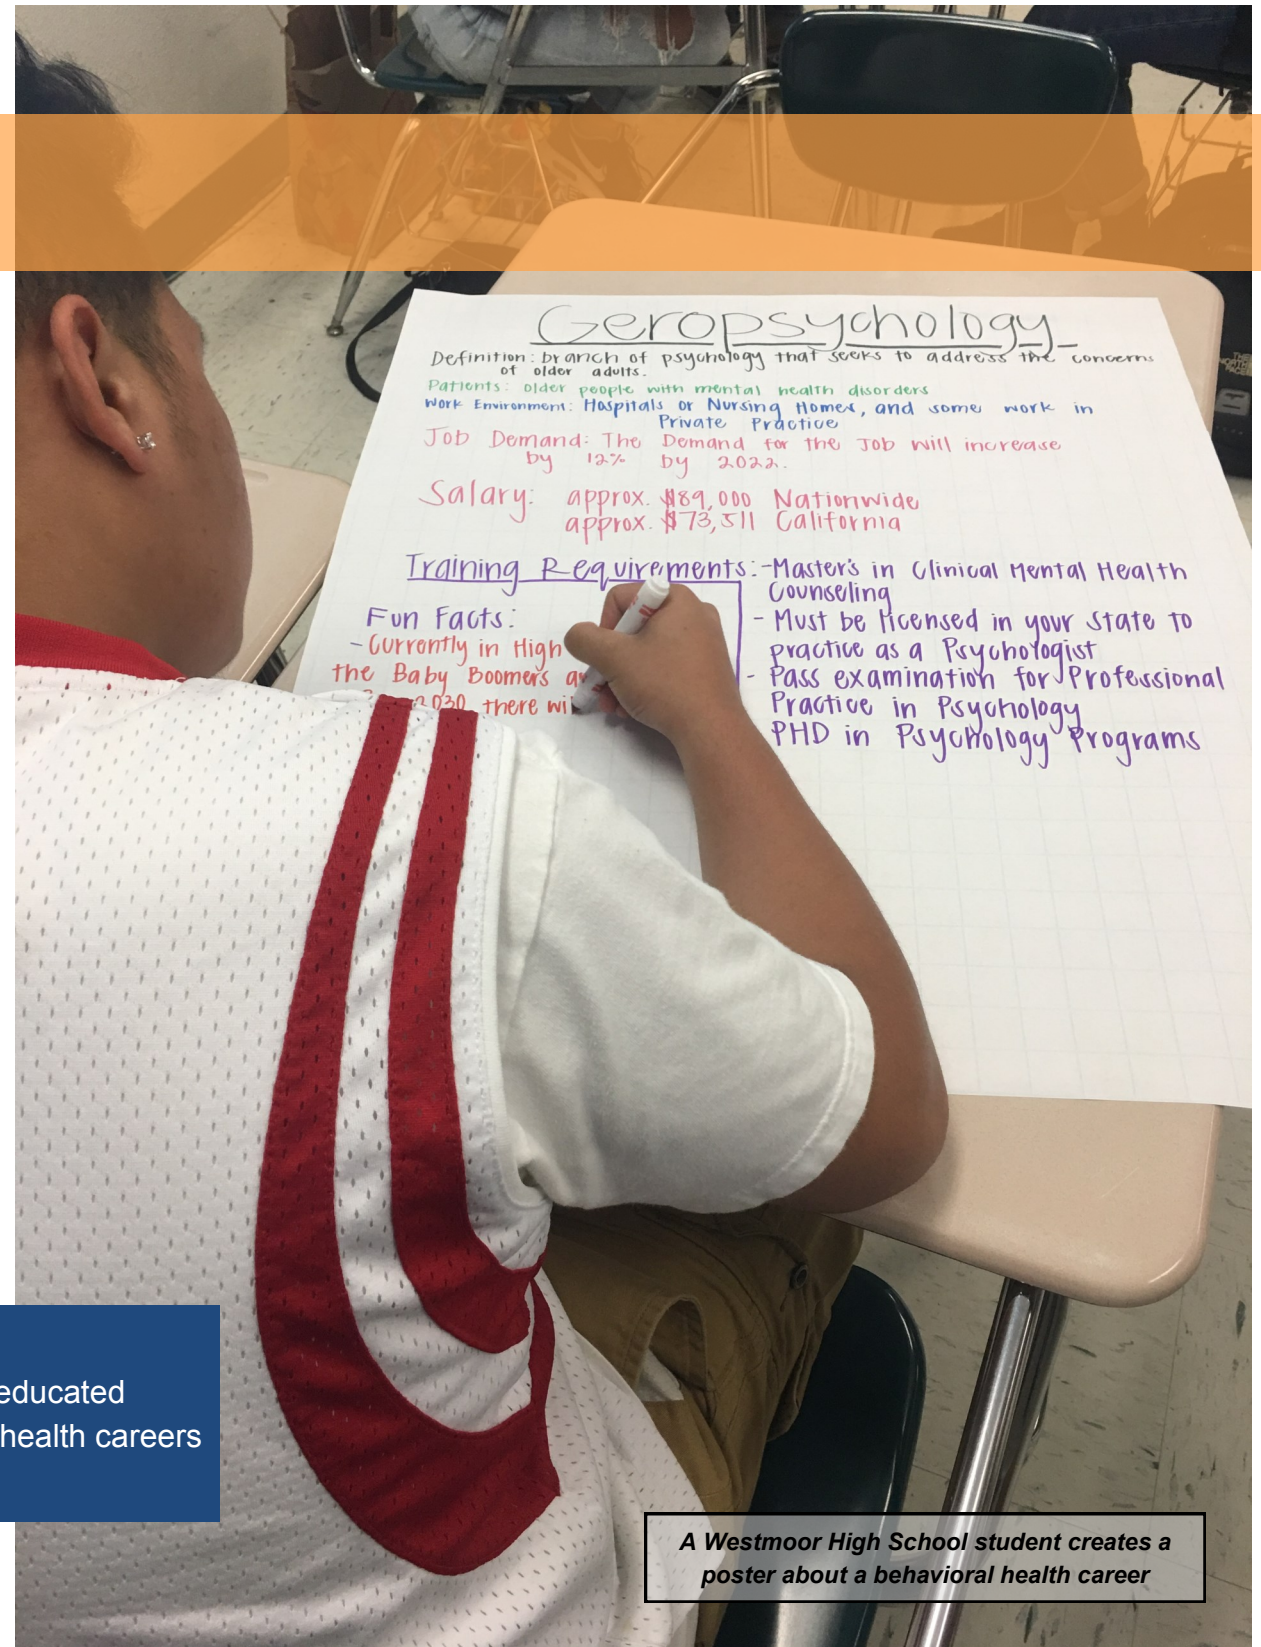 Geropsychology
Definition: branch of psychology that seeks to address the concerns
of older adults.
Patients: older people with mental health disorders
Work Environment: Hospitals or Nursing Homes, and some work in
Private Practice
Job Demand: The Demand for the Job will increase
by 12% by 2022.
Salary: approx. $89,000 Nationwide
approx. $73,511 California
Training Requirements: - Master's in Clinical Mental Health
Counseling
- Must be licensed in your State to
practice as a Psychologist
- Pass examination for Professional
Practice in Psychology
PHD in Psychology Programs
Fun Facts:
- Currently in High
the Baby Boomers
2030 there
THE NORTH FACE
educated
health careers
A Westmoor High School student creates a
poster about a behavioral health career